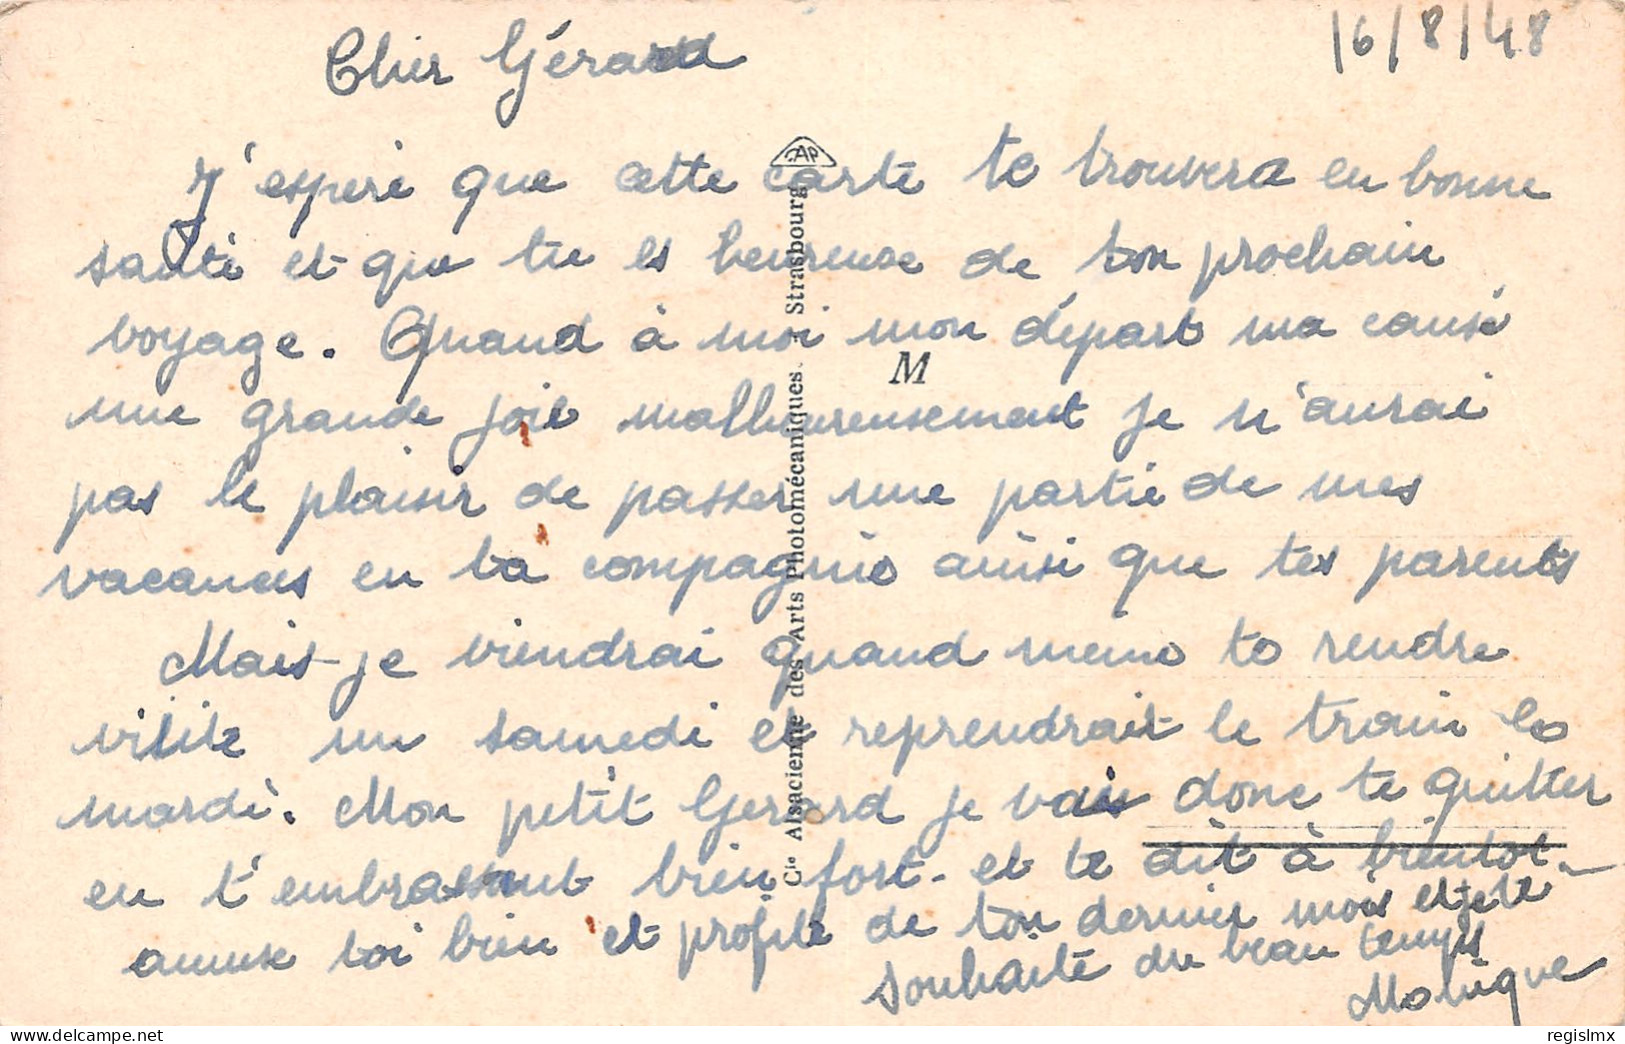 16/8/48
Cher Gérard
J'espère que cette carte te trouvera en bonne
santé et que tu es heureuse de ton prochain
voyage. Quand à moi mon départ ma causé
une grande joie malheureusement je n'aurai
pas le plaisir de passer une partie de mes
vacances en ta compagnie ainsi que tes parents
Mais je viendrai quand même te rendre
visite un samedi et reprendrait le train le
mardi. Mon petit Gerard je vais donc te quitter
en t'embrassant bien fort. et te dit à bientot._
amuse toi bien et profite de ton dernier mois et je te
souhaite du beau temps
Monique
CAP
Cie Alsacienne des Arts Photomécaniques. Strasbourg
M
regislmx